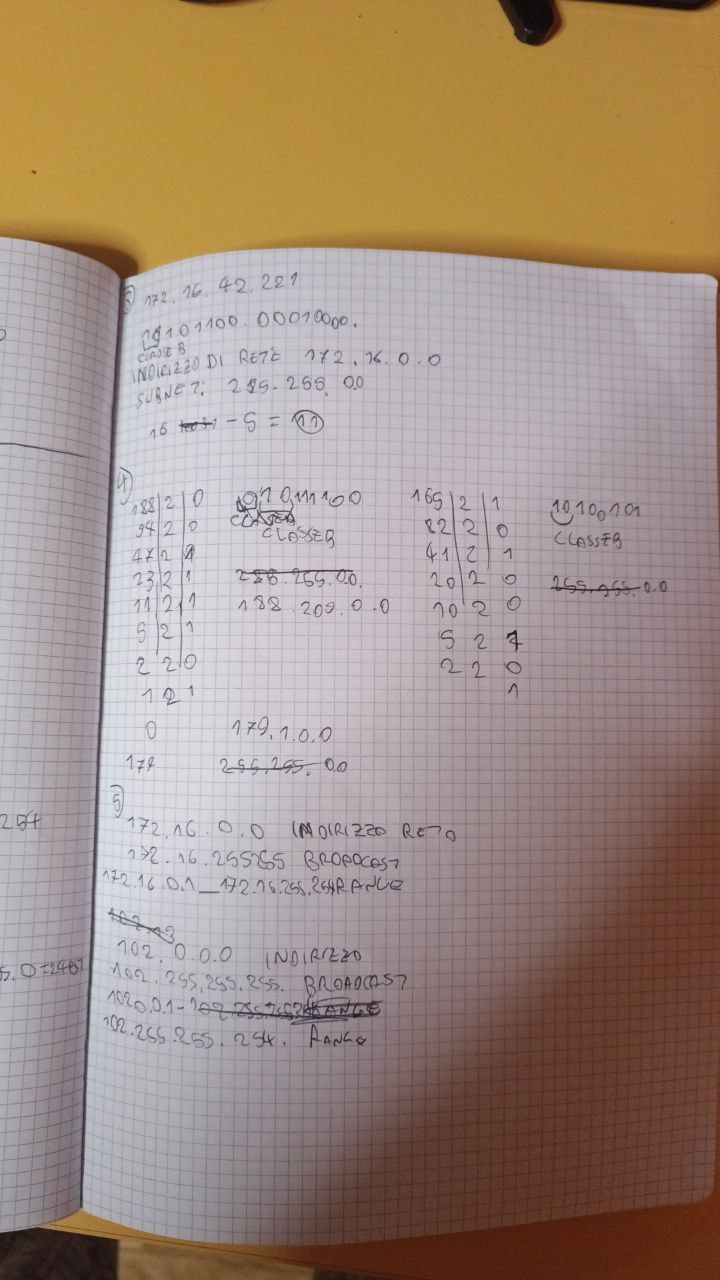 3) 172.16.42.221
10101100.00010000.
CLASSE B
INDIRIZZO DI RETE 172.16.0.0
SUBNET: 255.255.00
16 - 5 = 11
4)
188 2 0
94 2 0
47 2 1
23 2 1
11 2 1
5 2 1
2 2 0
1 2 1
0
174
10111100
CLASSE B
255.255.00.
188.209.0.0
179.1.0.0
255.255.00
165 2 1
82 2 0
41 2 1
20 2 0
10 2 0
5 2 1
2 2 0
1
10100101
CLASSE B
255.255.0.0
5)
172.16.0.0 INDIRIZZO RETO
172.16.255255 BROADCAST
172.16.0.1_172.16.255.254RANGE
102.0.0.0 INDIRIZZO
102.255.255.255. BROADCAST
1020.0.1-
102.255.255.254. RANGE
254
5.0=